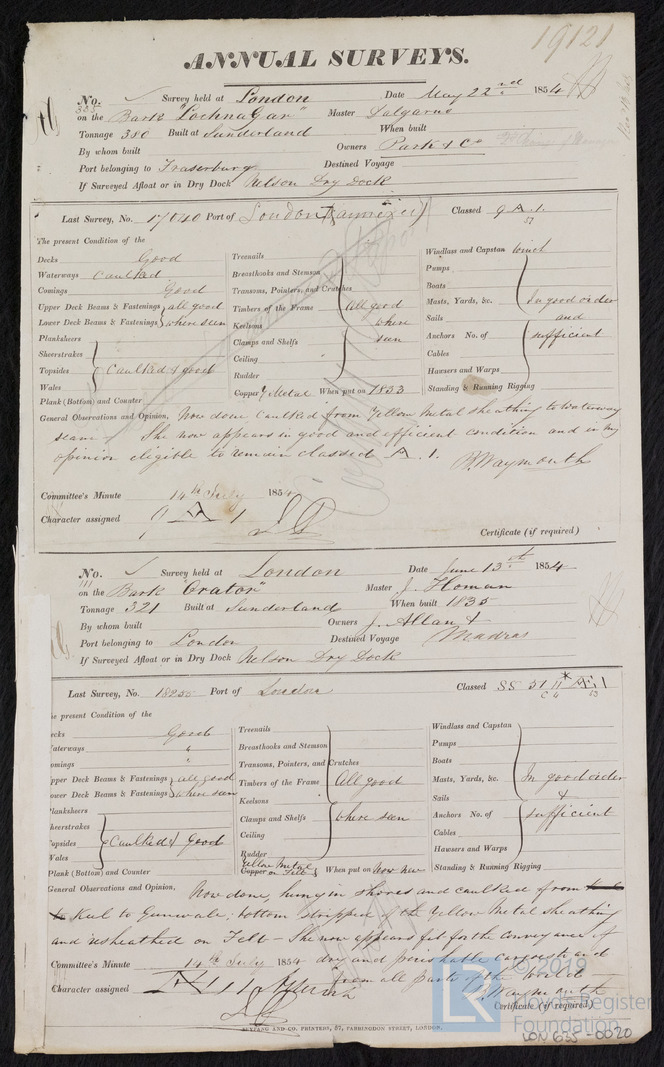 19121
ANNUAL SURVEYS.
No. 385 Survey held at London Date May 22nd 1854
on the Bark "Lochnagar" Master Dalgarno
Tonnage 380 Built at Sunderland When built
By whom built Owners Park & Co
Port belonging to Fraserburg Destined Voyage
If Surveyed Afloat or in Dry Dock Nelson Dry Dock
Last Survey, No. 17040 Port of London (annexed) Classed 9 A.1. 53
The present Condition of the
Decks Good Treenails Windlass and Capstan
Waterways Caulked Breasthooks and Stemson Pumps
Comings Good Transoms, Pointers, and Crutches Boats
Upper Deck Beams & Fastenings all good Timbers of the Frame all good Masts, Yards, &c. In good order
Lower Deck Beams & Fastenings where seen Keelsons where Sails and
Planksheers Clamps and Shelfs seen Anchors No. of sufficient
Sheerstrakes Ceiling Cables
Topsides Caulked & good Rudder Hawsers and Warps
Wales Copper Y Metal When put on 1853 Standing & Running Rigging
Plank (Bottom) and Counter
General Observations and Opinion, Now done Caulked from Yellow Metal sheathing to Waterway
seam - She now appears in good and efficient condition and in my
opinion eligible to remain classed A.1. Waymouth
Committee's Minute 14th July 1854
Character assigned 9 A 1
Certificate (if required)
No. 111 Survey held at London Date June 13th 1854
on the Bark "Orator" Master J. Homan
Tonnage 321 Built at Sunderland When built 1835
By whom built Owners J. Allan &
Port belonging to London Destined Voyage Madras
If Surveyed Afloat or in Dry Dock Nelson Dry Dock
Last Survey, No. 18255 Port of London Classed SS. 51 * Æ 1 53
he present Condition of the
ecks Good Treenails Windlass and Capstan
aterways " Breasthooks and Stemson Pumps
omings " Transoms, Pointers, and Crutches Boats
pper Deck Beams & Fastenings all good Timbers of the Frame All good Masts, Yards, &c. In good order
ower Deck Beams & Fastenings where seen Keelsons Sails &
lanksheers Clamps and Shelfs where seen Anchors No. of sufficient
heerstrakes Ceiling Cables
opsides Caulked & Good Rudder Hawsers and Warps
Wales Yellow Metal Copper on Felt When put on Now new Standing & Running Rigging
Plank (Bottom) and Counter
General Observations and Opinion, Now done, hung in shores and caulked from
Keel to Gunwale; bottom stripped of the Yellow Metal sheathing
and resheathed on Felt - She now appears fit for the conveyance of
Committee's Minute 14th July 1854 dry and perishable cargoes to and
Character assigned Æ 1 from all parts of the World
Waymouth
Certificate (if required)
AND CO. PRINTERS, 87, FARRINGDON STREET, LONDON.
© 2019
LR
Lloyd's Register
Foundation
LON 635-0020